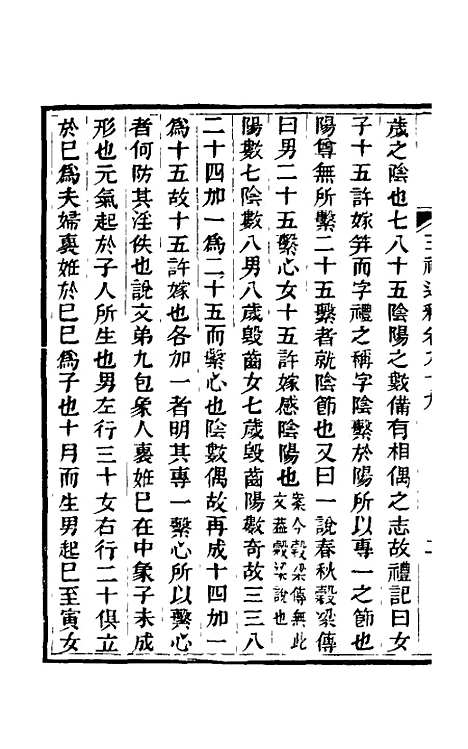 歲之陰也七八十五陰陽之數備有相偶之志故禮記曰女
子十五許嫁笄而字禮之稱字陰繫於陽所以專一之節也
陽尊無所繫二十五繫者就陰節也又曰一說春秋穀梁傳
曰男二十五繫心女十五許嫁感陰陽也案今穀梁傳無此文蓋穀梁說也
陽數七陰數八男八歲毀齒女七歲毀齒陽數奇故三三八
二十四加一爲二十五而繫心也陰數偶故再成十四加一
爲十五故十五許嫁也各加一者明其專一繫心所以繫心
者何防其淫佚也說文弟九包象人裹妊巳在中象子未成
形也元氣起於子人所生也男左行三十女右行二十俱立
於巳爲夫婦裹妊於巳巳爲子也十月而生男起巳至寅女